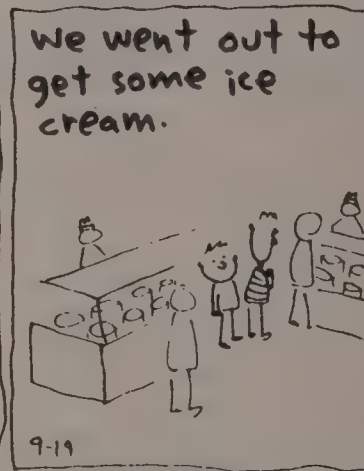 we went out to
get some ice
cream.
9-19